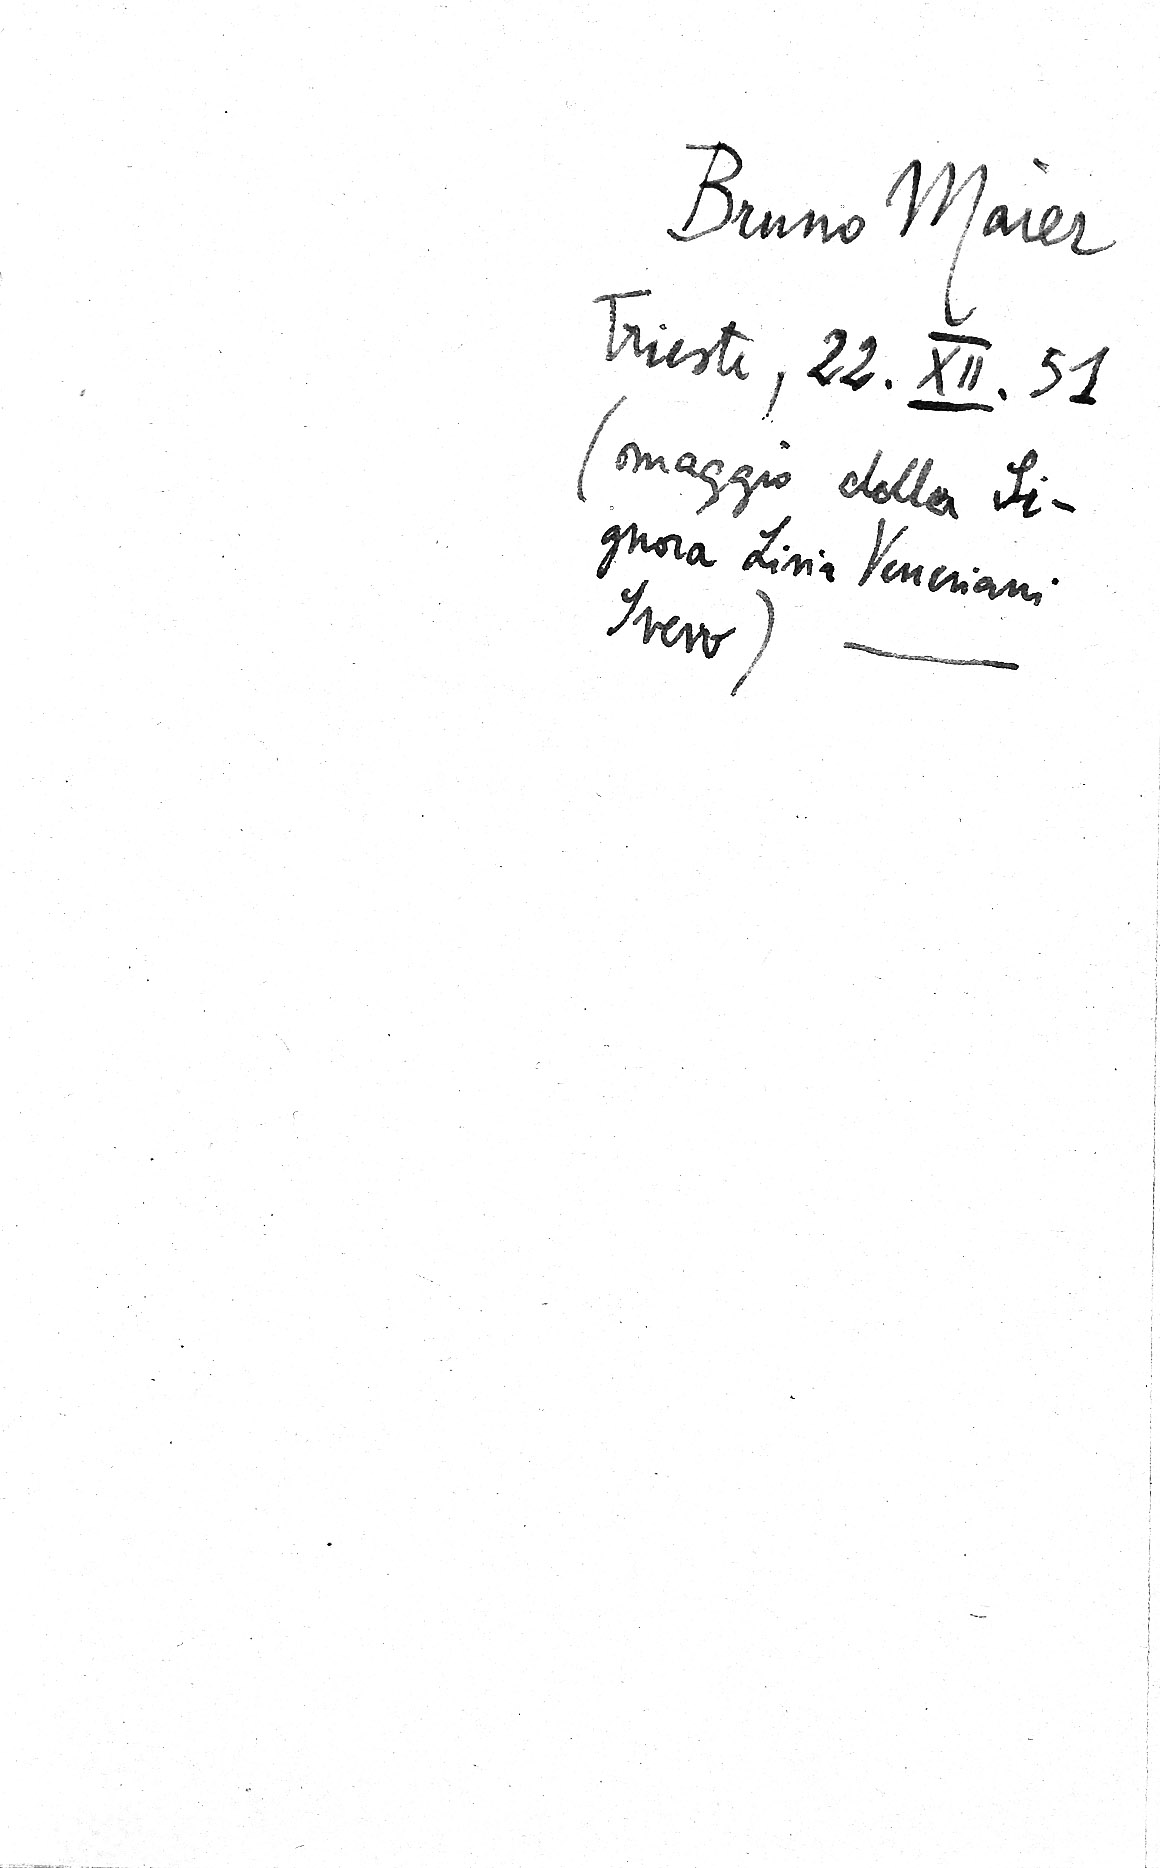 Bruno Maier
Trieste, 22. XII. 51
(omaggio della Si-
gnora Livia Veneziani
Svevo)